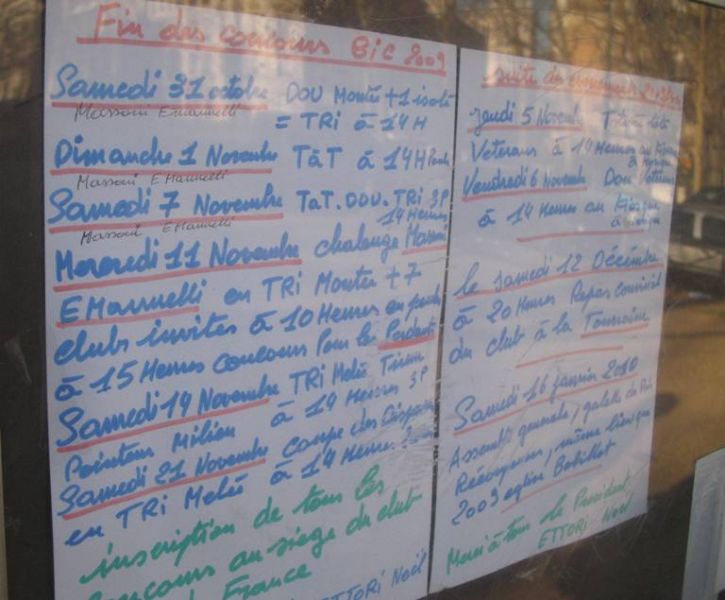 Fin des concours BIC 2009
Samedi 31 octobre DOU Montée + 1 isolé
Massoni Emannelli
= TRi à 14H
Dimanche 1 Novembre TàT à 14H
Massoni EMannelli
Samedi 7 Novembre TaT. DOU. TRi 3P
14 Heures
Massoni EMannelli
Mercredi 11 Novembre chalenge Massoni
EMannelli en TRi Montée + 7
clubs invités à 10 Heures
à 15 Heures concours Pour les Perdants
Samedi 14 Novembre TRi Melée Tireur
Pointeur Milieu à 14 Heures 3P
Samedi 21 Novembre Coupe des
en TRi Melée à 14 Heures
inscription de tous les
concours au siege du club
de France
ETTORI Noël
suite des
jeudi 5 Novembre Tête à tête
Veterans à 14 Heures au
Vendredi 6 Novembre Dou
à 14 Heures au Kiosque
le Samedi 12 Décembre
à 20 Heures Repas convivial
du club à la Touraine
Samedi 16 janvier 2010
Assemblé generale, galette des Rois
Récompenses, même lieu que
2009 eglise
Merci à tous le Président
ETTORI Noël